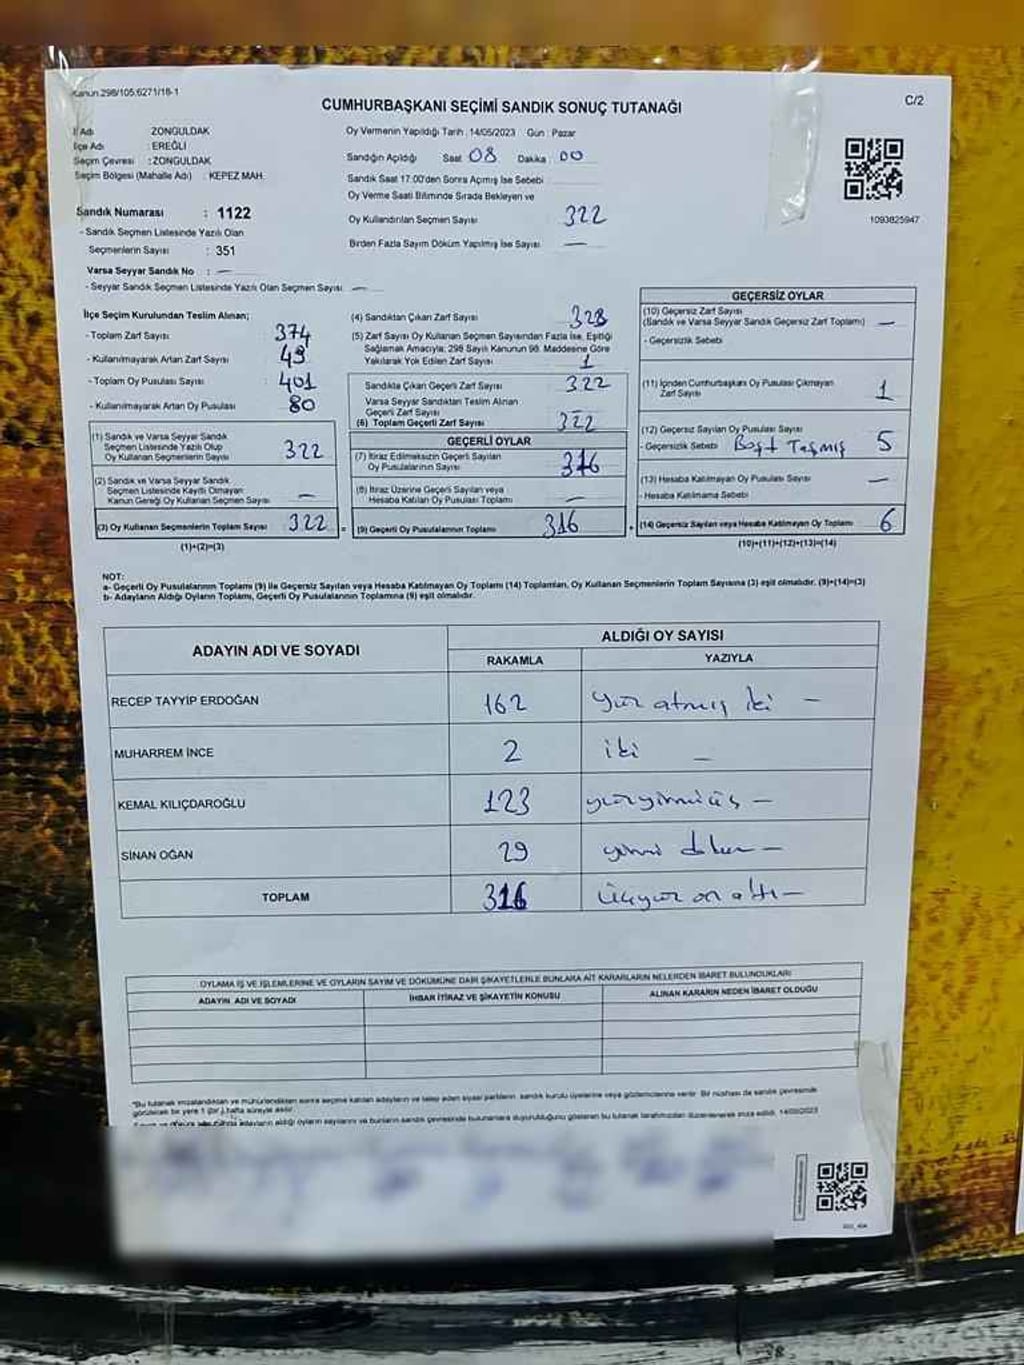 Kanun.298/105;6271/18-1
C/2
CUMHURBAŞKANI SEÇİMİ SANDIK SONUÇ TUTANAĞI
İl Adı ZONGULDAK
İlçe Adı : EREĞLİ
Seçim Çevresi : ZONGULDAK
Seçim Bölgesi (Mahalle Adı) : KEPEZ MAH.
Sandık Numarası : 1122
- Sandık Seçmen Listesinde Yazılı Olan
Seçmenlerin Sayısı : 351
Varsa Seyyar Sandık No : —
- Seyyar Sandık Seçmen Listesinde Yazılı Olan Seçmen Sayısı: —
Oy Vermenin Yapıldığı Tarih : 14/05/2023 Gün : Pazar
Sandığın Açıldığı Saat 08 Dakika : 00
Sandık Saat 17:00'den Sonra Açımış İse Sebebi :
Oy Verme Saati Bitiminde Sırada Bekleyen ve
Oy Kullandırılan Seçmen Sayısı : 322
Birden Fazla Sayım Döküm Yapılmış İse Sayısı : —
1093825947
İlçe Seçim Kurulundan Teslim Alınan;
- Toplam Zarf Sayısı : 374
- Kullanılmayarak Artan Zarf Sayısı :
- Toplam Oy Pusulası Sayısı : 401
- Kullanılmayarak Artan Oy Pusulası : 80
(1) Sandık ve Varsa Seyyar Sandık
Seçmen Listesinde Yazılı Olup
Oy Kullanan Seçmenlerin Sayısı 322
(2) Sandık ve Varsa Seyyar Sandık
Seçmen Listesinde Kayıtlı Olmayan
Kanun Gereği Oy Kullanan Seçmen Sayısı —
(3) Oy Kullanan Seçmenlerin Toplam Sayısı 322 =
(1)+(2)=(3)
(4) Sandıktan Çıkan Zarf Sayısı : 323
(5) Zarf Sayısı Oy Kullanan Seçmen Sayısından Fazla İse, Eşitliği
Sağlamak Amacıyla; 298 Sayılı Kanunun 98. Maddesine Göre
Yakılarak Yok Edilen Zarf Sayısı : 1
Sandıkta Çıkan Geçerli Zarf Sayısı : 322
Varsa Seyyar Sandıktan Teslim Alınan
Geçerli Zarf Sayısı :
(6) Toplam Geçerli Zarf Sayısı : 322
GEÇERLİ OYLAR
(7) İtiraz Edilmeksizin Geçerli Sayılan
Oy Pusulalarının Sayısı 316
(8) İtiraz Üzerine Geçerli Sayılan veya
Hesaba Katılan Oy Pusulası Toplamı —
(9) Geçerli Oy Pusulalarının Toplamı 316 +
GEÇERSİZ OYLAR
(10) Geçersiz Zarf Sayısı
(Sandık ve Varsa Seyyar Sandık Geçersiz Zarf Toplamı) —
- Geçersizlik Sebebi
(11) İçinden Cumhurbaşkanı Oy Pusulası Çıkmayan
Zarf Sayısı 1
(12) Geçersiz Sayılan Oy Pusulası Sayısı
- Geçersizlik Sebebi Taşmış 5
(13) Hesaba Katılmayan Oy Pusulası Sayısı —
- Hesaba Katılmama Sebebi
(14) Geçersiz Sayılan veya Hesaba Katılmayan Oy Toplamı 6
(10)+(11)+(12)+(13)=(14)
NOT:
a- Geçerli Oy Pusulalarının Toplamı (9) ile Geçersiz Sayılan veya Hesaba Katılmayan Oy Toplamı (14) Toplamları, Oy Kullanan Seçmenlerin Toplam Sayısına (3) eşit olmalıdır. (9)+(14)=(3)
b- Adayların Aldığı Oyların Toplamı, Geçerli Oy Pusulalarının Toplamına (9) eşit olmalıdır.
ADAYIN ADI VE SOYADI ALDIĞI OY SAYISI
RAKAMLA YAZIYLA
RECEP TAYYİP ERDOĞAN 162 yüz atmış iki —
MUHARREM İNCE 2 iki —
KEMAL KILIÇDAROĞLU 123 yüzyirmiüç —
SİNAN OĞAN 29 yirmi dokuz —
TOPLAM 316 üçyüz on altı —
OYLAMA İŞ VE İŞLEMLERİNE VE OYLARIN SAYIM VE DÖKÜMÜNE DAİR ŞİKAYETLERLE BUNLARA AİT KARARLARIN NELERDEN İBARET BULUNDUKLARI
ADAYIN ADI VE SOYADI İHBAR İTİRAZ VE ŞİKAYETİN KONUSU ALINAN KARARIN NEDEN İBARET OLDUĞU
*Bu tutanak imzalandıktan ve mühürlendikten sonra seçime katılan adayların ve talep eden siyasi partilerin, sandık kurulu üyelerine veya gözlemcilerine verilir. Bir nüshası da sandık çevresinde
görülecek bir yere 1 (bir) hafta süreyle asılır.